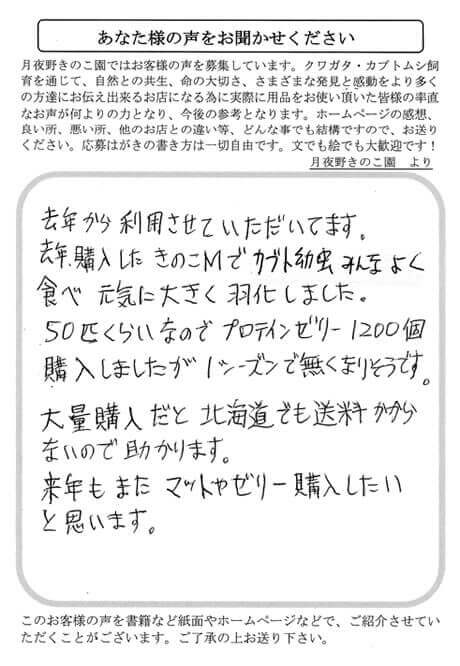 あなた様の声をお聞かせください
月夜野きのこ園ではお客様の声を募集しています。クワガタ・カブトムシ飼
育を通じて、自然との共生、命の大切さ、さまざまな発見と感動をより多く
の方達にお伝え出来るお店になる為に実際に用品をお使い頂いた皆様の率直
なお声が何よりの力となり、今後の参考となります。ホームページの感想、
良い所、悪い所、他のお店との違い等、どんな事でも結構ですので、お送り
ください。応募はがきの書き方は一切自由です。文でも絵でも大歓迎です！
月夜野きのこ園　より
去年から利用させていただいてます。
去年購入したきのこMでカブト幼虫みんなよく
食べ元気に大きく羽化しました。
50匹くらいなのでプロテインゼリー1200個
購入しましたが1シーズンで無くなりそうです。
大量購入だと北海道でも送料かから
ないので助かります。
来年もまたマットやゼリー購入したい
と思います。
このお客様の声を書籍など紙面やホームページなどで、ご紹介させてい
ただくことがございます。ご了承の上お送り下さい。